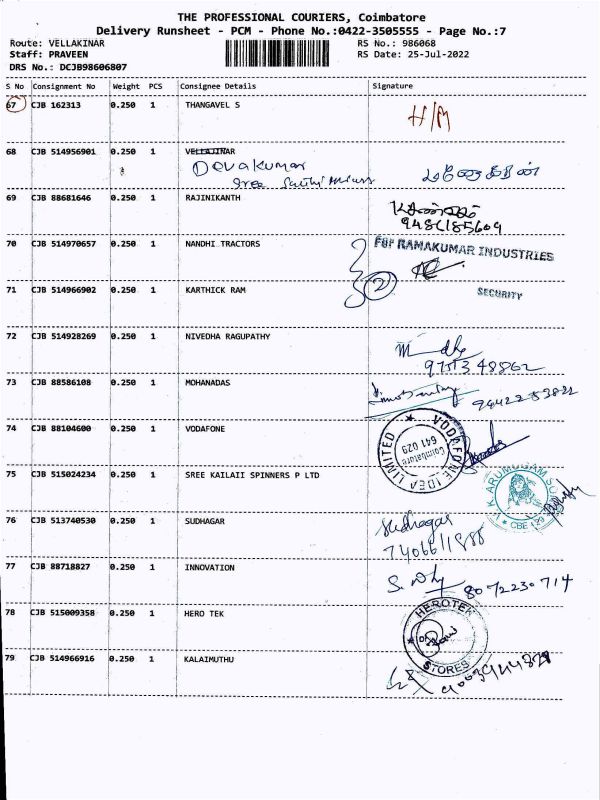 THE PROFESSIONAL COURIERS, Coimbatore
Delivery Runsheet - PCM - Phone No.:0422-3505555 - Page No.:7
Route: VELLAKINAR RS No.: 986068
Staff: PRAVEEN RS Date: 25-Jul-2022
DRS No.: DCJB98606807
S No Consignment No Weight PCS Consignee Details Signature
67 CJB 162313 0.250 1 THANGAVEL S H/M
68 CJB 514956901 0.250 1 VELLAJINAR
Devakumar
Sree
69 CJB 88681646 0.250 1 RAJINIKANTH
9486185609
70 CJB 514970657 0.250 1 NANDHI TRACTORS FOR RAMAKUMAR INDUSTRIES
71 CJB 514966902 0.250 1 KARTHICK RAM 2 SECURITY
72 CJB 514928269 0.250 1 NIVEDHA RAGUPATHY
73 CJB 88586108 0.250 1 MOHANADAS
74 CJB 88104600 0.250 1 VODAFONE VODAFONE IDEA LIMITED Coimbatore 641 029
75 CJB 515024234 0.250 1 SREE KAILAII SPINNERS P LTD
76 CJB 513740530 0.250 1 SUDHAGAR Sudhagar
77 CJB 88718827 0.250 1 INNOVATION 8072230714
78 CJB 515009358 0.250 1 HERO TEK HEROTEK STORES
79 CJB 514966916 0.250 1 KALAIMUTHU